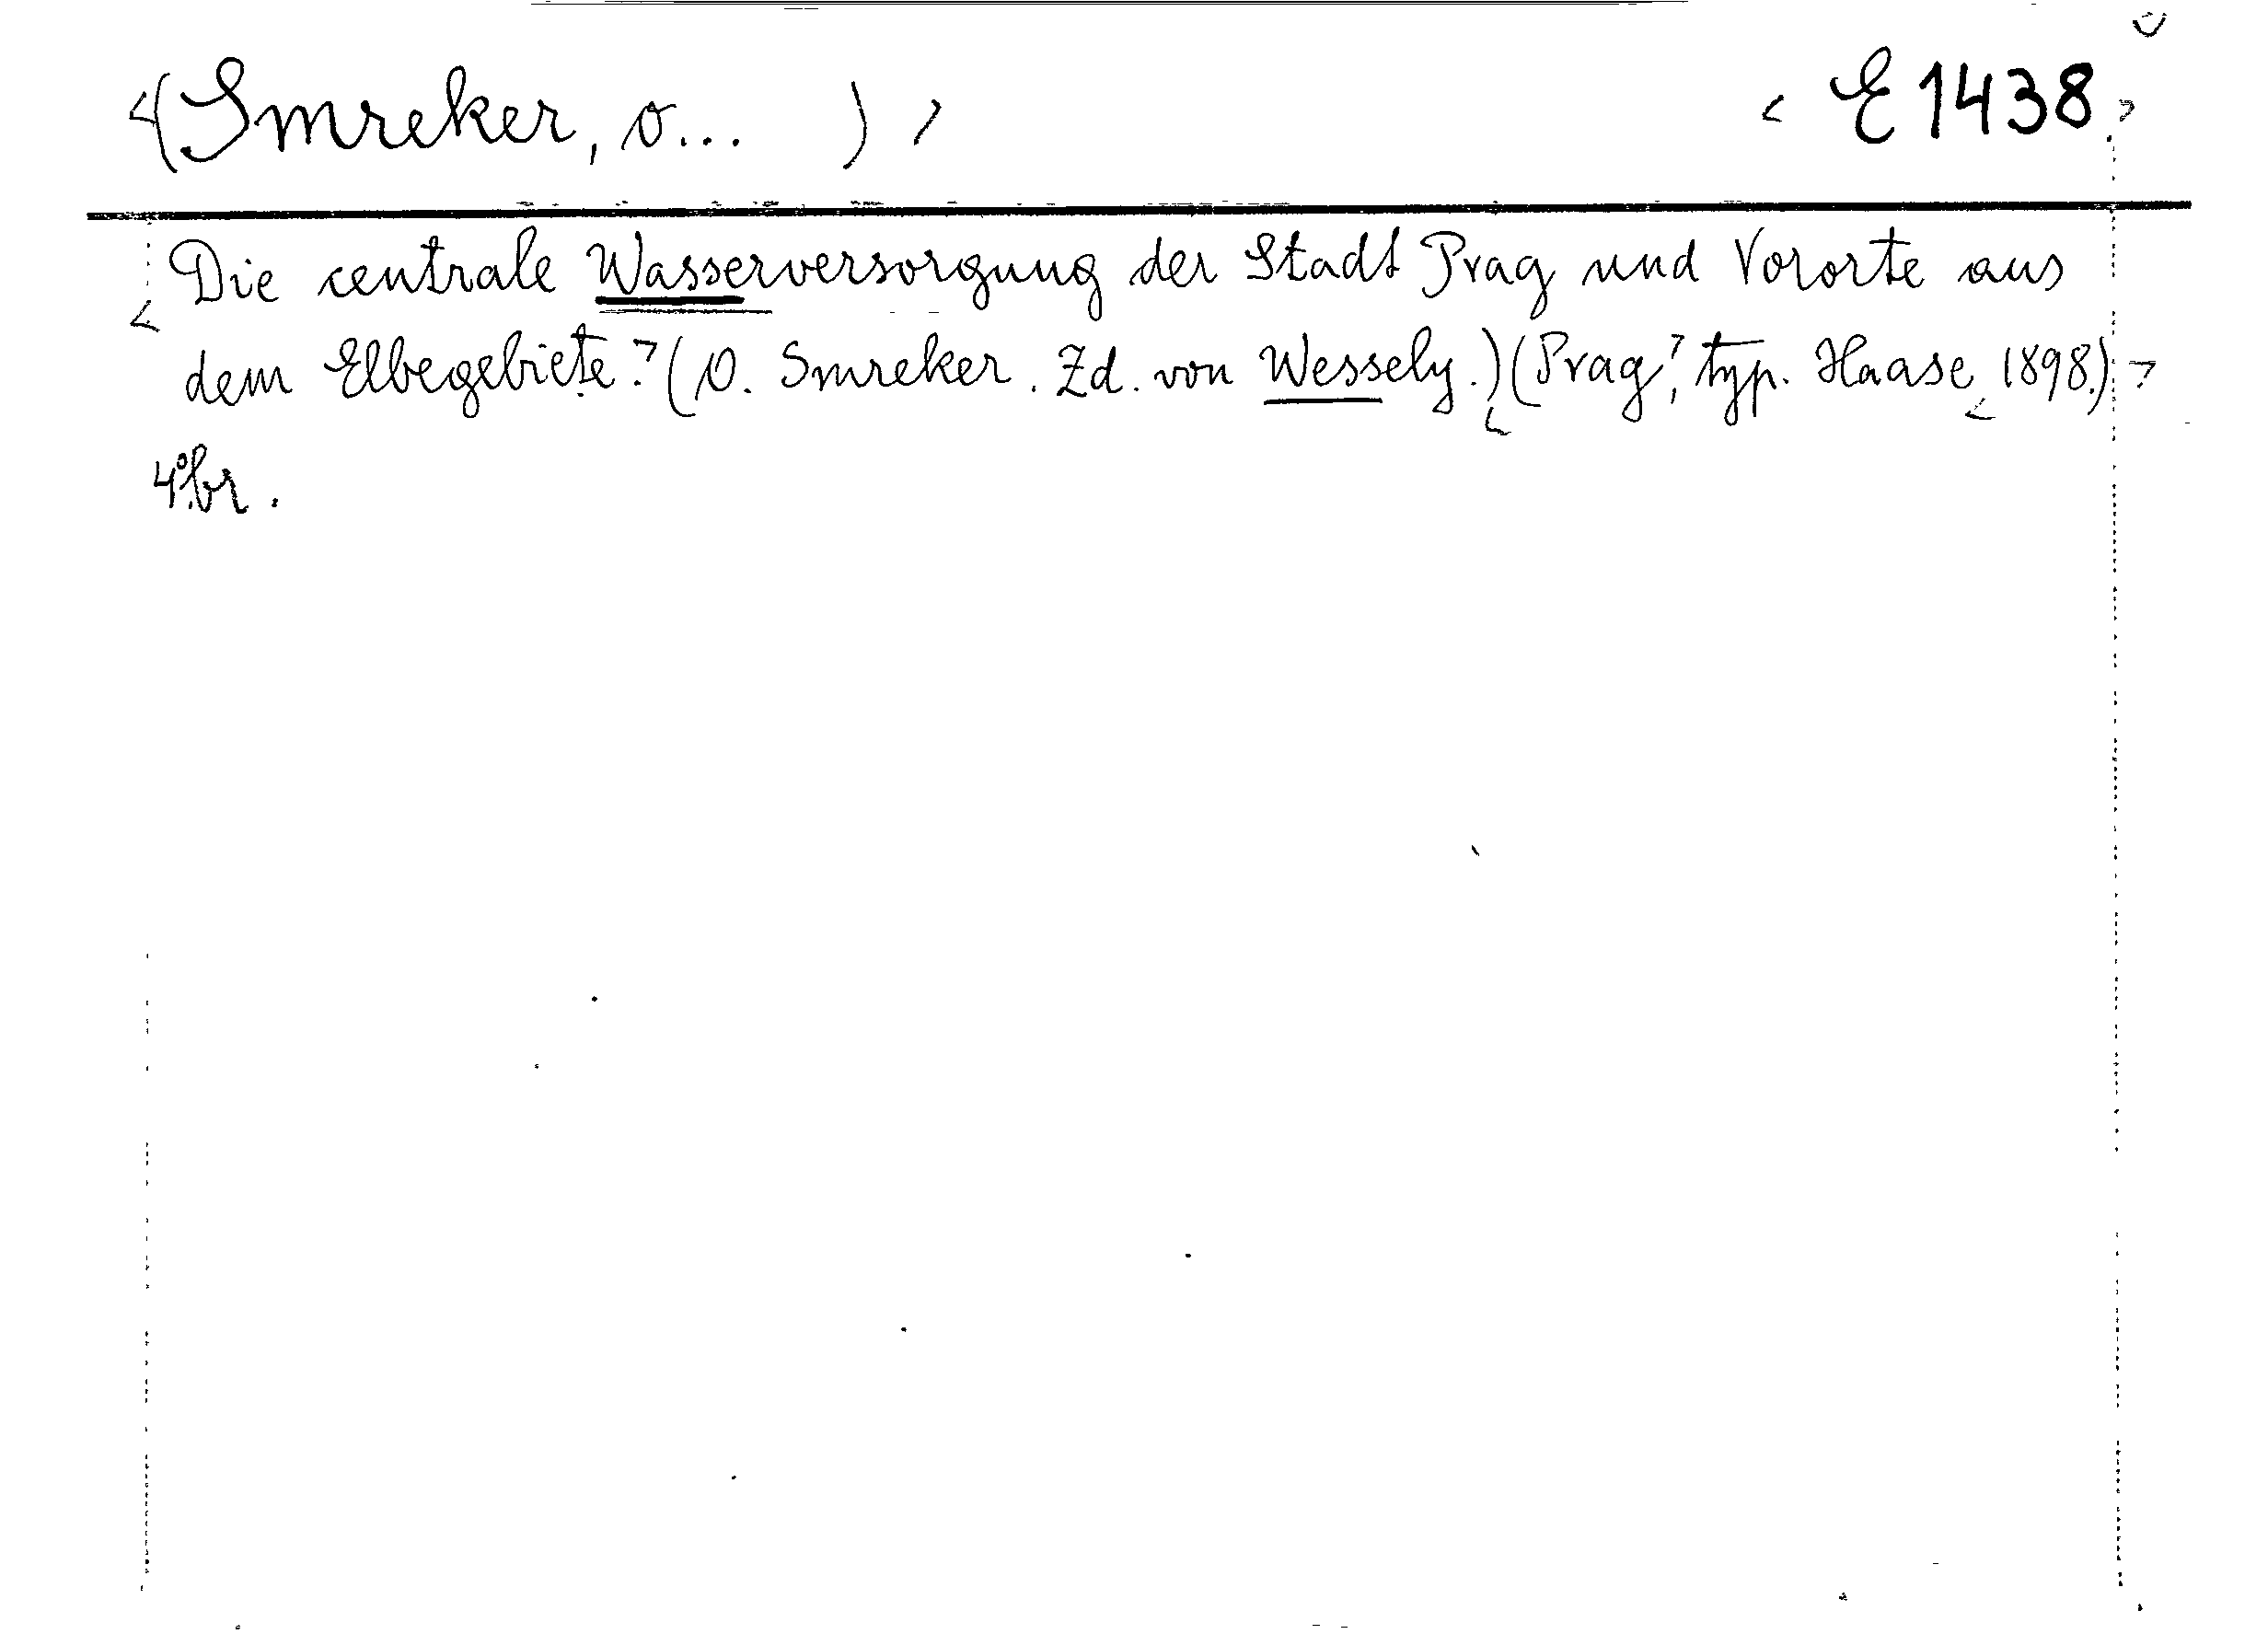 <(Smreker, O... )> <E 1438.>
Die centrale Wasserversorgung der Stadt Prag und Vororte aus
dem Elbegebiete.> (O. Smreker. Zd. von Wessely.) <(Prag>, typ. Haase < 1898.)>
4° br.